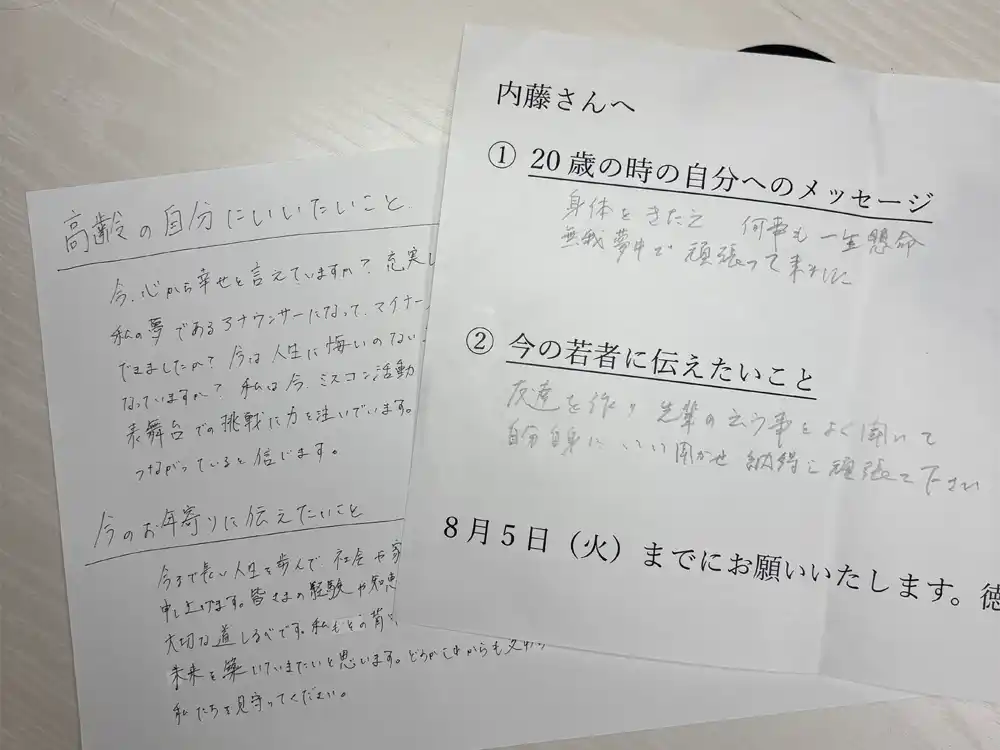 高齢の自分にいいたいこと
今、心から幸せと言えていますか？充実し
私の夢であるアナウンサーになって、マイナー
できましたか？今は人生に悔いのない
なっていますか？私は今、ミスコン活動
表舞台での挑戦に力を注いでいます。
つながっていると信じます。
今のお年寄りに伝えたいこと
今まで長い人生を歩んで、社会や家
申し上げます。皆さまの経験や知恵
大切な道しるべです。私もその背
未来を築いていきたいと思います。どうかこれからも
私たちを見守ってください。
内藤さんへ
① 20歳の時の自分へのメッセージ
身体をきたえ 何事も一生懸命
無我夢中で頑張って来ました
② 今の若者に伝えたいこと
友達を作り 先輩の云う事をよく聞いて
自分自身にいい聞かせ 納得し頑張って下さい
8月5日（火）までにお願いいたします。徳